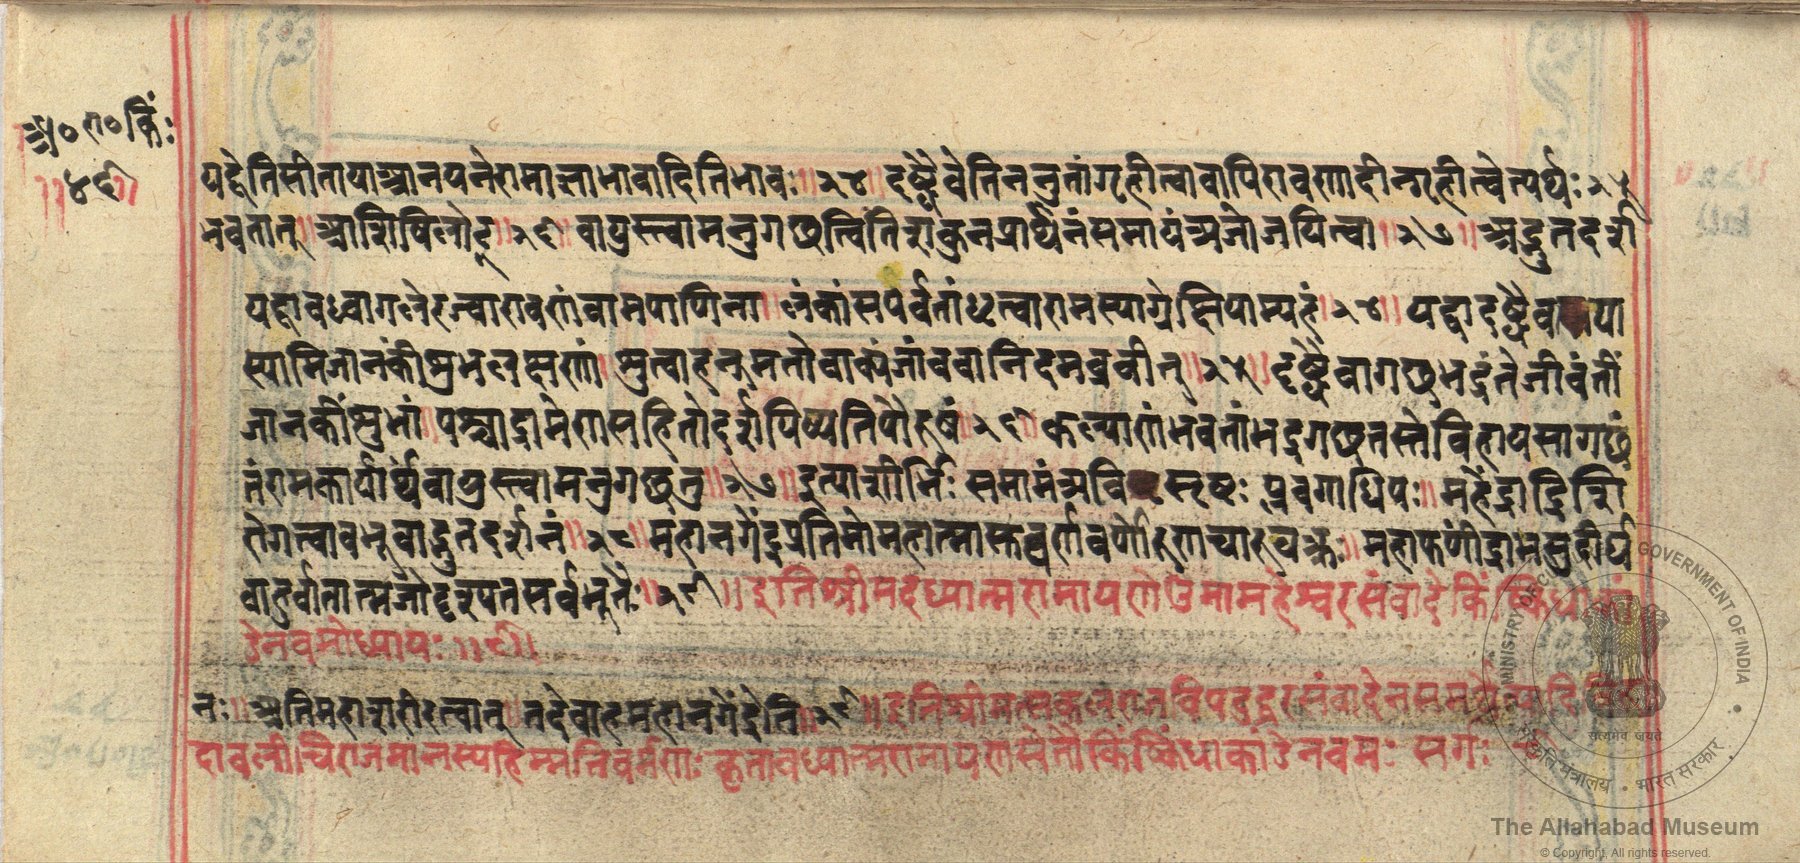 अ० रा० किं:
॥४९॥
यद्वेति सीताया आनयने रामाज्ञाभावादिति भावः ॥२४॥ दृष्ट्वैवेति न नु तां गृहीत्वा वापि रावणादीन् गृहीत्वेत्यर्थः २५
भवतात् ॥ आशिषि लोट् ॥२६॥ वायुस्त्वामनुगछत्विति
यद्वा बध्वा गले रज्वा रावणं वामपाणिना ॥ लंकां सपर्वतां धृत्वा रामस्याग्रे क्षिपाम्यहं ॥२४॥ यद्वा दृष्ट्वैव या
स्यामि जानकीं शुभलक्षणां ॥ श्रुत्वा हनुमतो वाक्यं जांबवानिदमब्रवीत् ॥२५॥ दृष्ट्वैवागछ भद्रं ते जीवंतीं
जानकीं शुभां ॥ पश्चाद्रामेण सहितो दर्शयिष्यसि पौरुषं ॥२६॥ कल्याणं भवतां भद्र गछतस्ते विहायसा गछं
तं रामकार्यार्थं वायुस्त्वामनुगछतु ॥२७॥ इत्याशीर्भिः समामंत्र्य वि सृष्टः प्लवगाधिपः ॥ महेंद्राद्रिशि
रो गत्वा बभूवाद्भुतदर्शनं ॥२८॥ महानगेंद्रप्रतिमो महात्मा सुवर्णवर्णोरुणचारुवक्त्रः ॥ महाफणींद्राभसुदीर्घ
बाहुर्वातात्मजोदृश्यत सर्वभूतैः ॥२९॥ इति श्रीमदध्यात्मरामायणे उमामहेश्वरसंवादे किंष्किंधाकां
डे नवमोध्यायः ॥९॥
नः ॥ अतिमहाशरीरत्वात् ॥ तदेवाह महानगेंद्रेति ॥२९॥ इति श्रीमत्सकल
दावलीविराजमानस्य हिम्मतिवर्मणः कृतावध्यात्मरामायणसेतौ किंष्किंधाकांडे नवमः सर्गः
MINISTRY OF CULTURE GOVERNMENT OF INDIA
सत्यमेव जयते
संस्कृति मंत्रालय • भारत सरकार
The Allahabad Museum
© Copyright, All rights reserved.